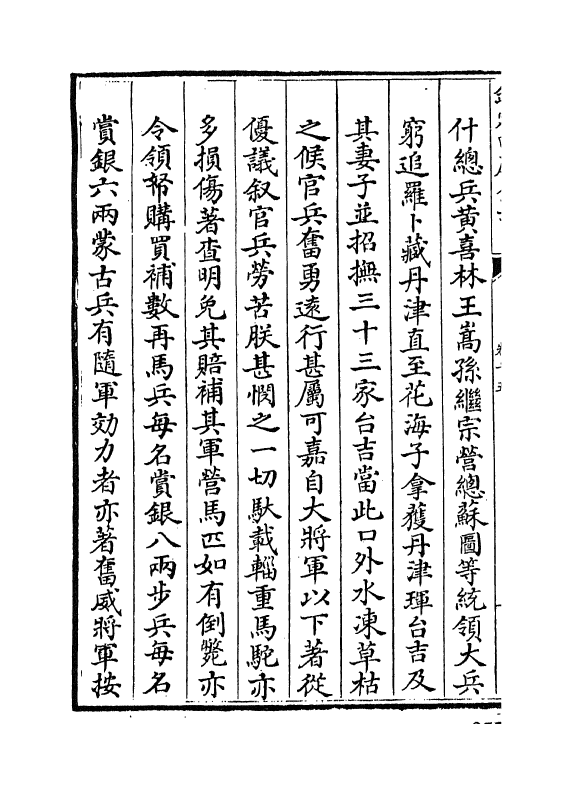 什總兵黃喜林王嵩孫繼宗營總蘇圖等統領大兵
窮追羅卜藏丹津直至花海子拿獲丹津琿台吉及
其妻子並招撫三十三家台吉當此口外水凍草枯
之候官兵奮勇遠行甚屬可嘉自大將軍以下著從
優議叙官兵勞苦朕甚憫之一切馱載輜重馬駝亦
多損傷著查明免其賠補其軍營馬匹如有倒斃亦
令領帑購買補數再馬兵每名賞銀八兩步兵每名
賞銀六兩蒙古兵有隨軍効力者亦著奮威將軍按